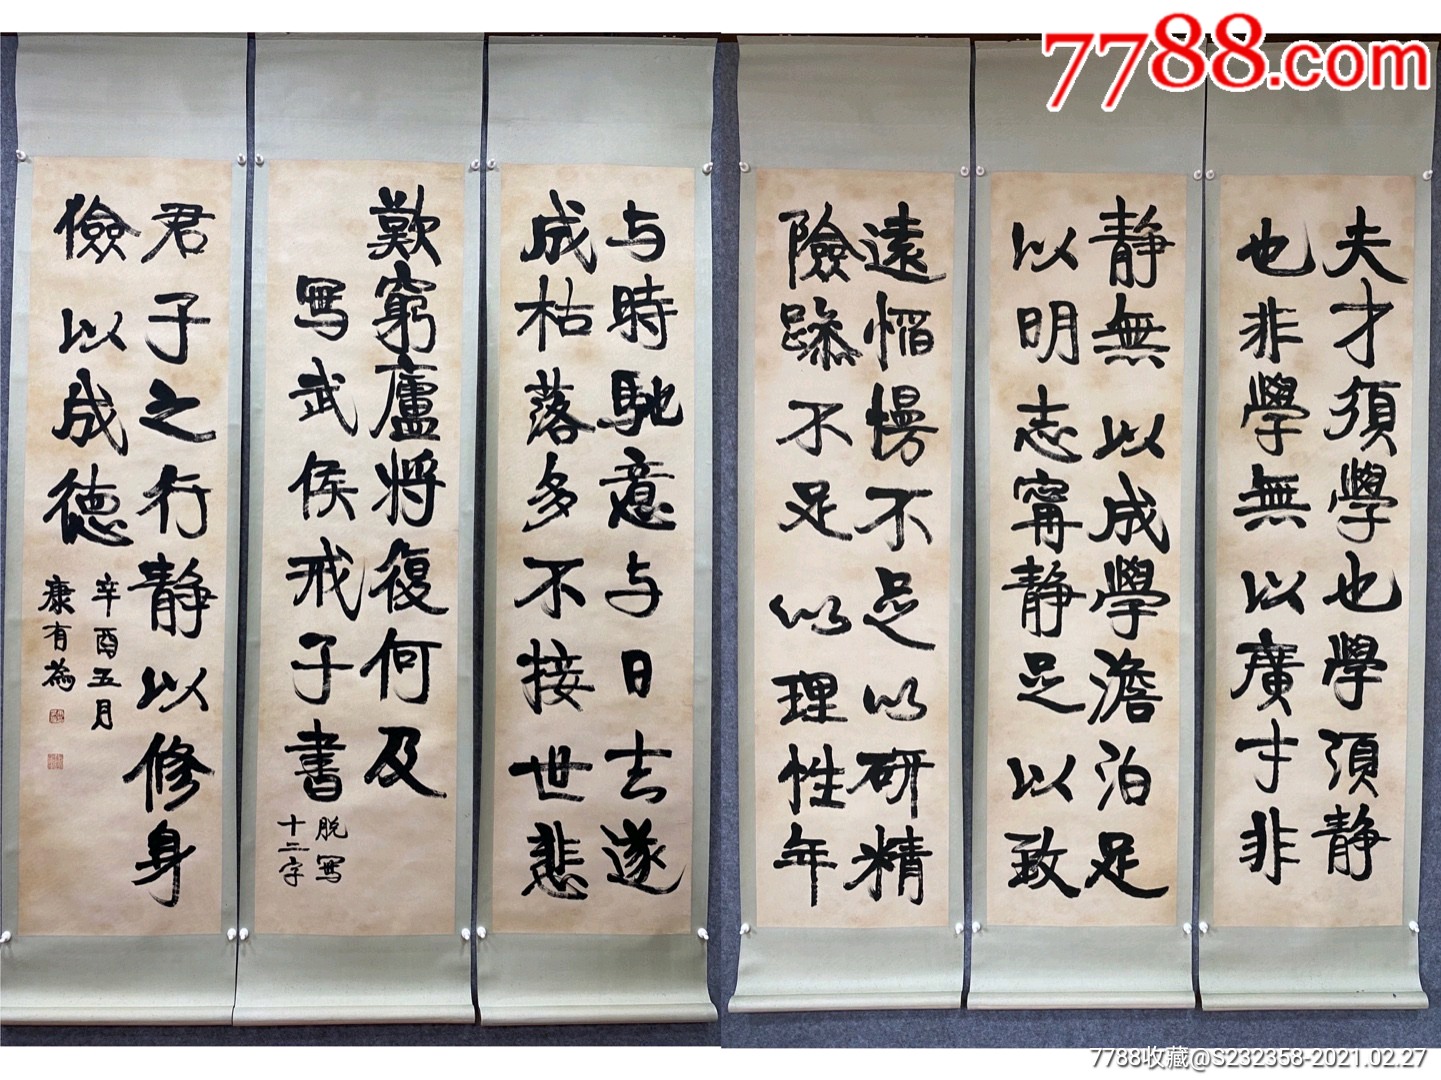 7788.com
夫才須學也學須静
也非學無以廣才非
静無以成學澹泊足
以明志寧静足以致
遠慆慢不足以研精
險躁不足以理性年
与時馳意与日去遂
成枯落多不接世悲
歎窮廬将復何及
寫武侯戒子書
脱寫
十二字
君子之行静以修身
儉以成德
辛酉五月
康有為
7788收藏@S232358-2021.02.27